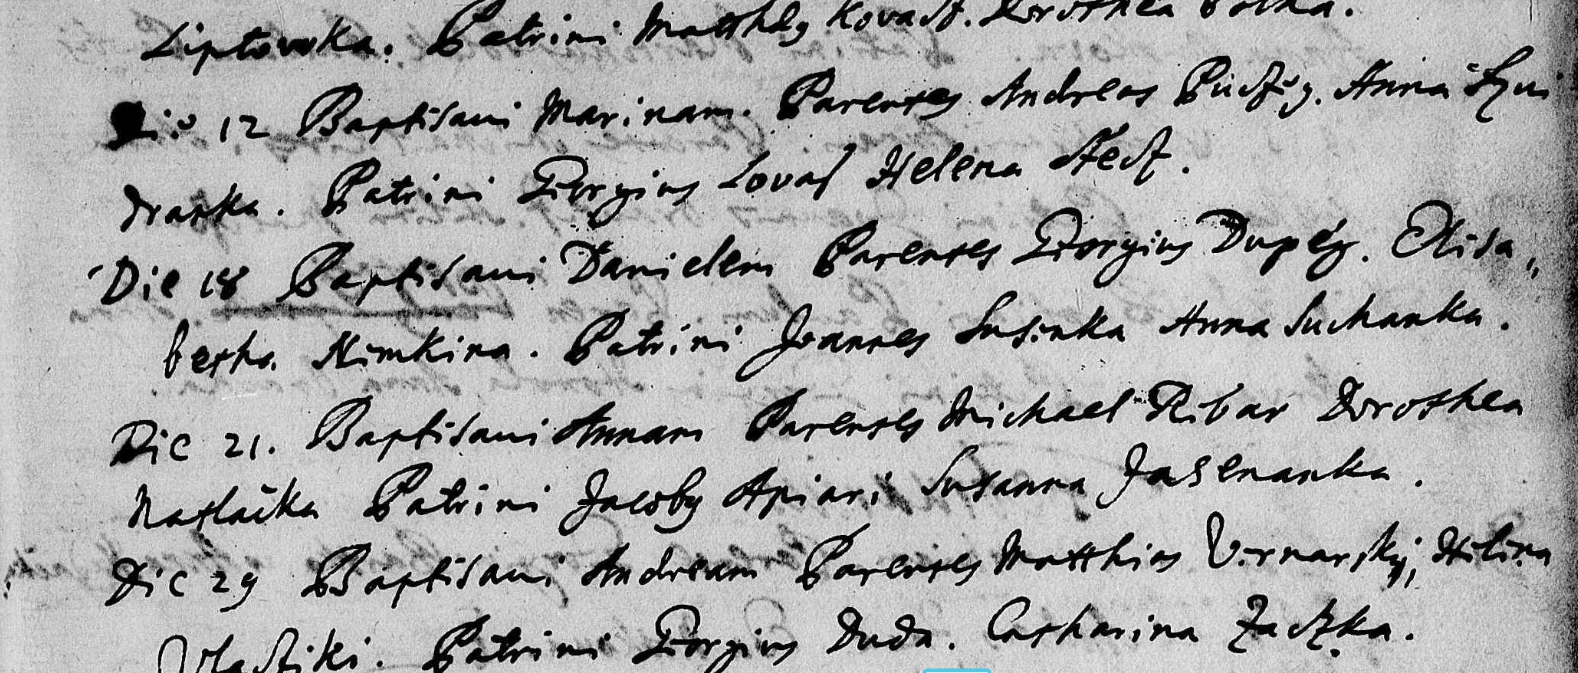 Liptovska. Patrini Matthæy Kovacz. Dorothea
Die 12 Baptisaui Marinam. Parentes Andreas Anna
dranka. Patrini Georgius Lovas Helena Stecz.
Die 18 Baptisaui Danielem Parentes Georgius Dupey. Elisa„
betha Nimkina. Patrini Joannes Susinka Anna Suchanka.
Die 21. Baptisaui Annam Parentes Michael Ribar Dorothea
Patrini Jacoby Apiari Susanna Jasenanka.
Die 29 Baptisaui Andream Parentes Matthias Vernarskÿ, Helena
Patrini Georgius Duda. Catharina Zaczka.